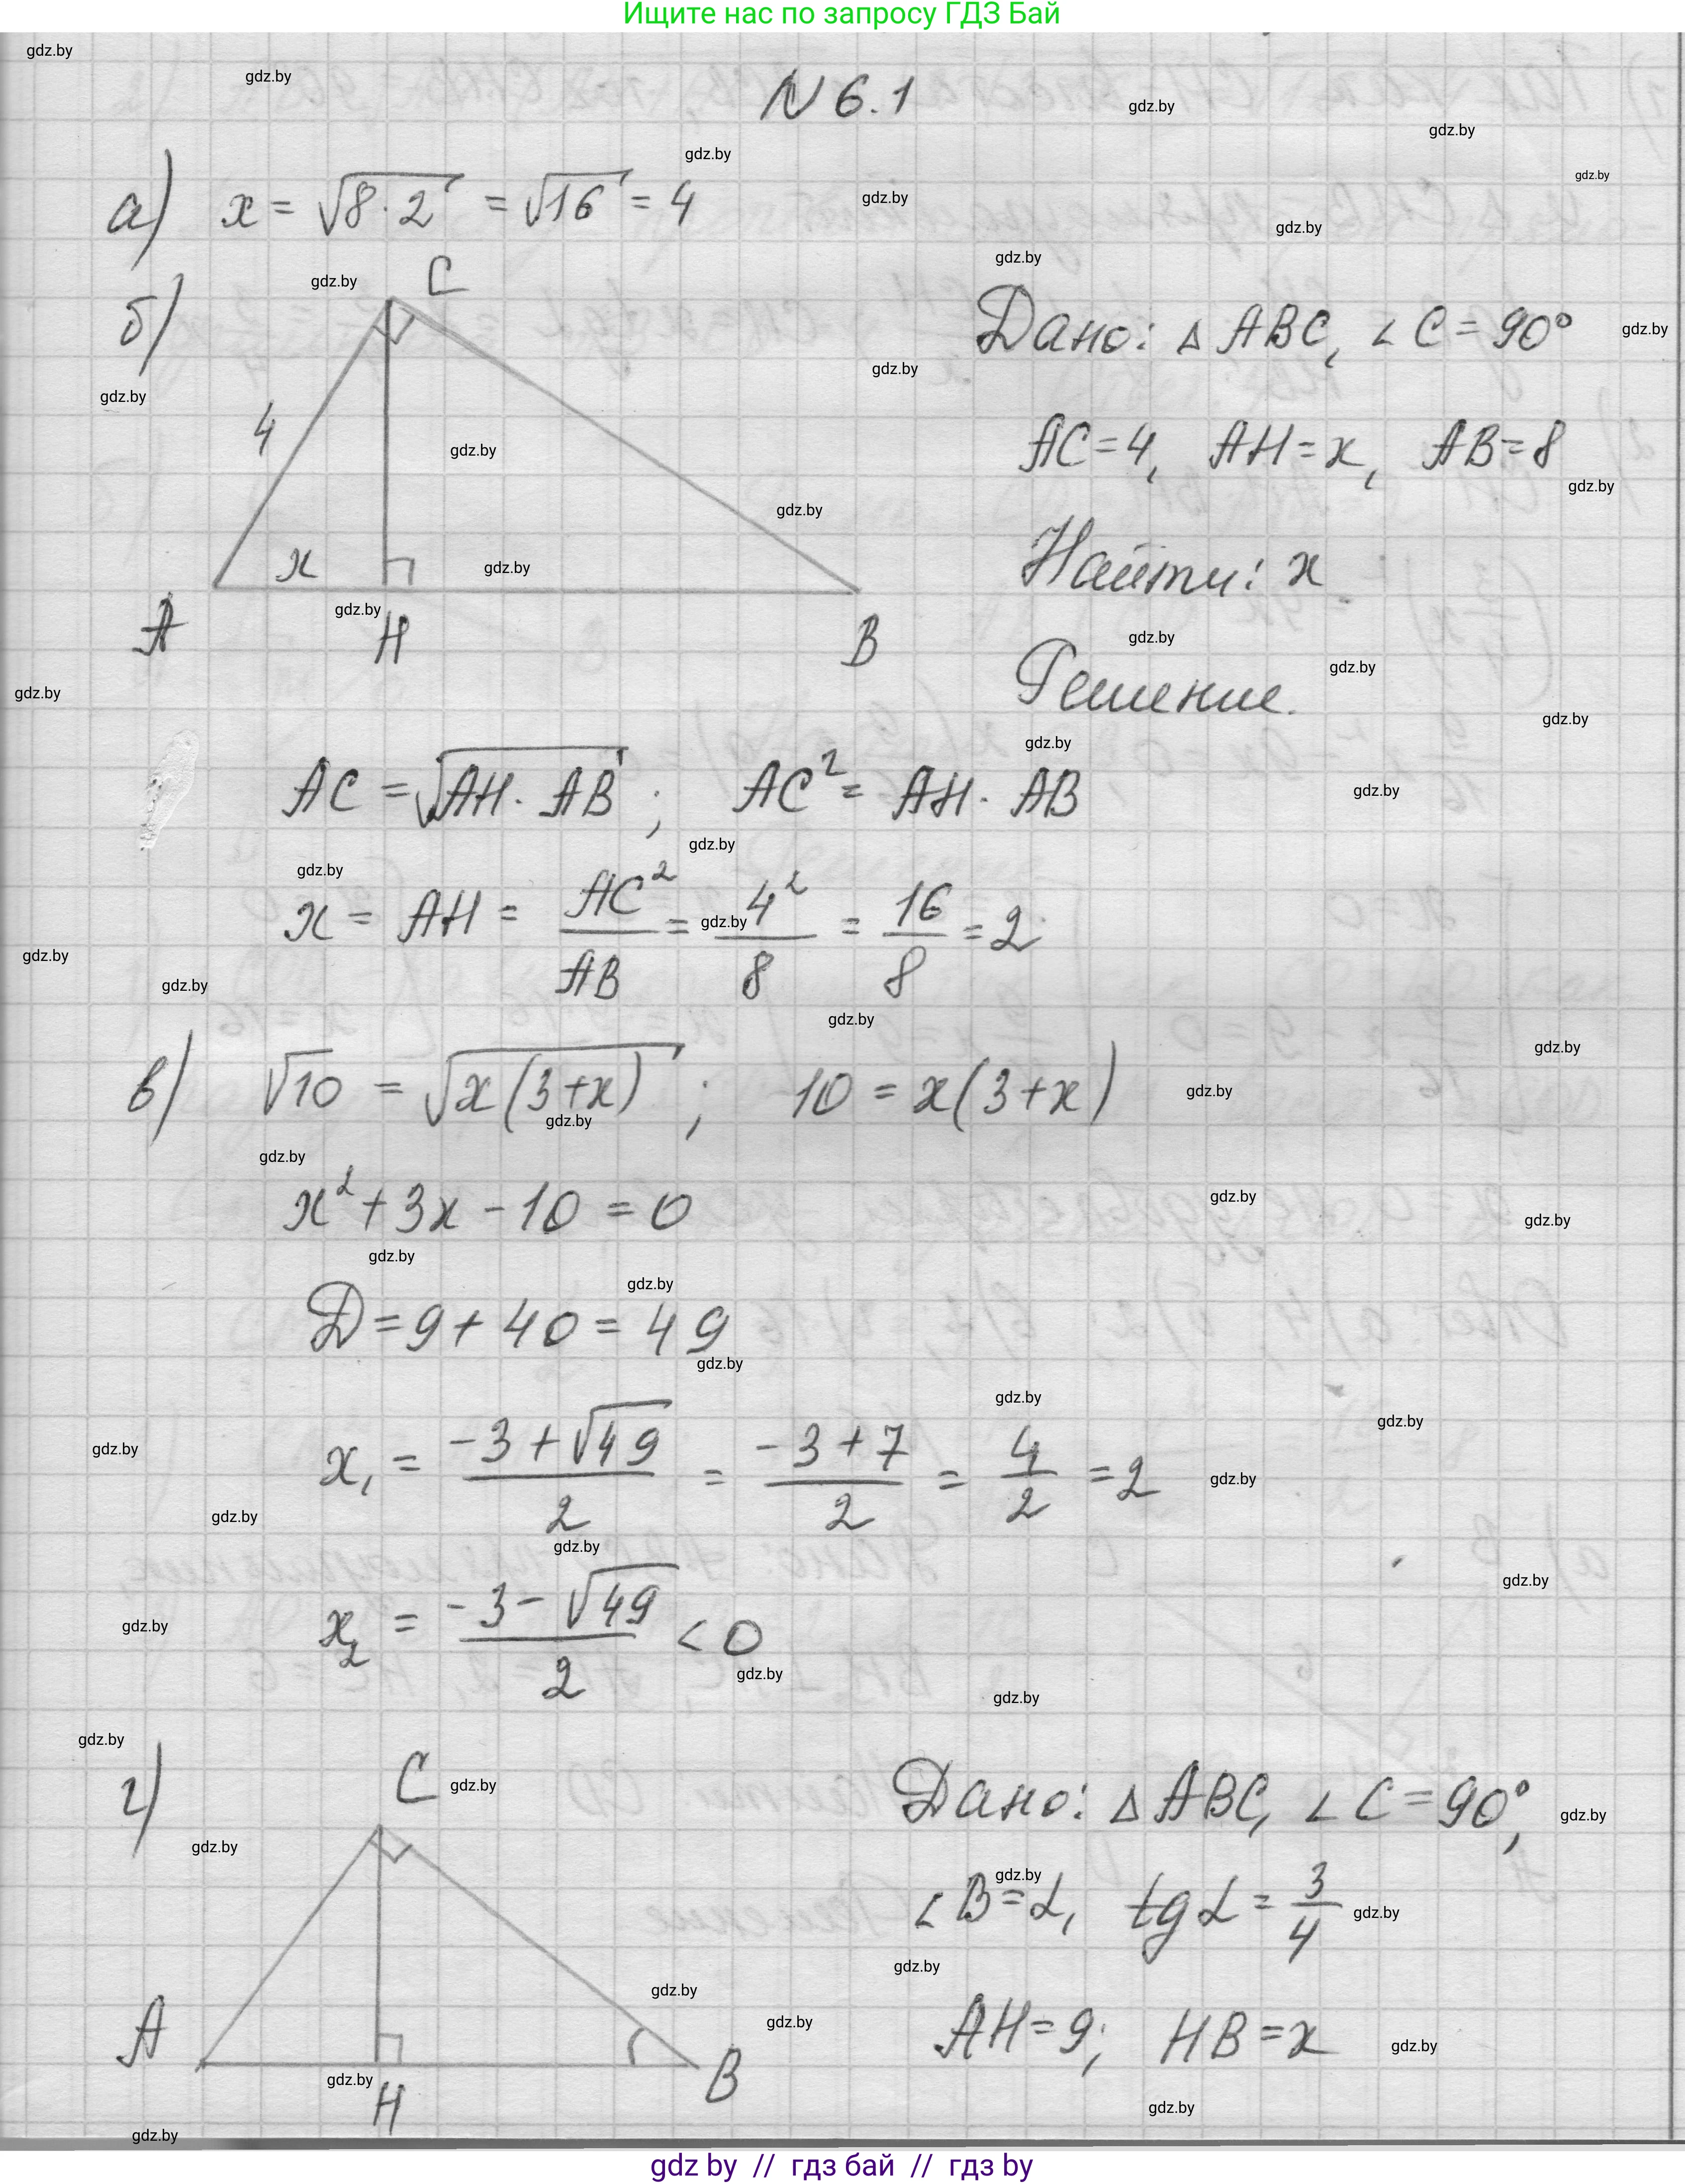 Ищите нас по запросу ГДЗ Бай
N 6.1
а) x = √(8 · 2) = √16 = 4
б)
C
4
x
A
H
B
Дано: △ ABC, ∠ C = 90°
AC = 4, AH = x, AB = 8
Найти: x
Решение.
AC = √(AH · AB) ; AC² = AH · AB
x = AH = AC²/AB = 4²/8 = 16/8 = 2
в) √10 = √(x(3+x)) ; 10 = x(3+x)
x² + 3x - 10 = 0
Д = 9 + 40 = 49
x₁ = (-3 + √49)/2 = (-3 + 7)/2 = 4/2 = 2
x₂ = (-3 - √49)/2 < 0
г)
C
A
H
B
Дано: △ ABC, ∠ C = 90°,
∠ B = α, tg α = 3/4
AH = 9; HB = x
gdz by // гдз бай // гдз by